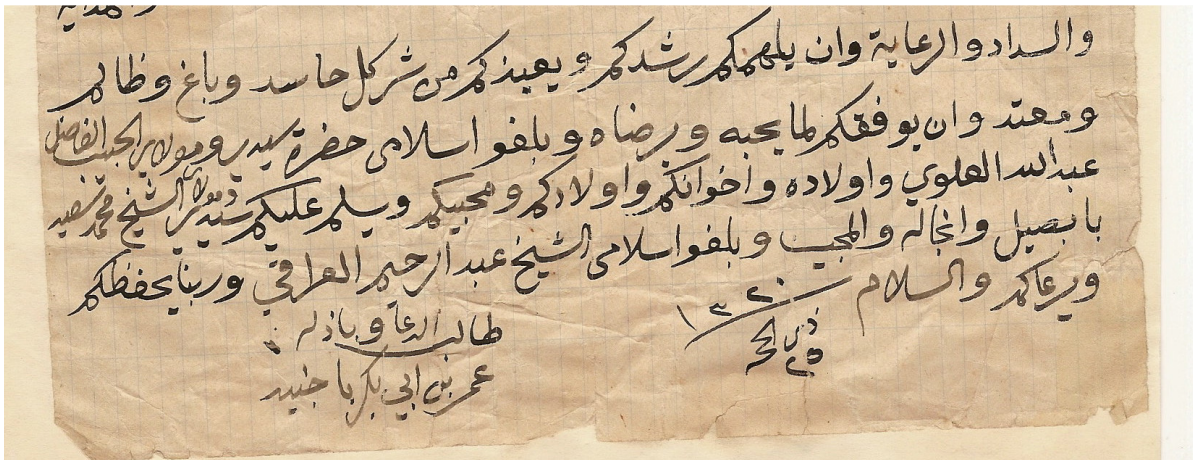 والسداد والرعاية وان يلهمكم رشدكم ويعيذكم من شر كل حاسد وباغ وظالم
ومعتد وان يوفقكم لما يحبه ويرضاه وبلغوا سلامي حضرة سيدي ومولاي الحبيب الفاضل
عبدالله العلوي واولاده واخوانكم واولادكم ومحبيكم ويسلم عليكم سيدي ومولاي الشيخ محمد سعيد
بابصيل وانجاله والمحب وبلغوا سلامي الشيخ عبد الرحيم العراقي وربنا يحفظكم
ويرعاكم والسلام ١٣٢٠
ذي الحجه
٢٥
طالب الدعا وباذله
عمر بن ابي بكر باجنيد